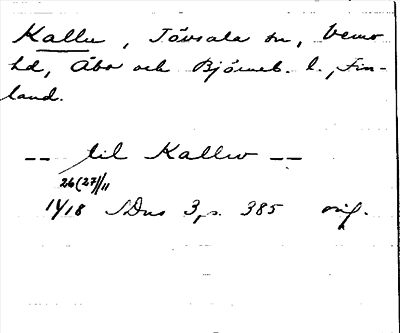 Kallu, Tövsala sn, Vemo
hd, Åbo och Björneb. l., Fin-
land.
-- til Kallw --
26(27)/11
1418 SDns 3, s. 385 orig.